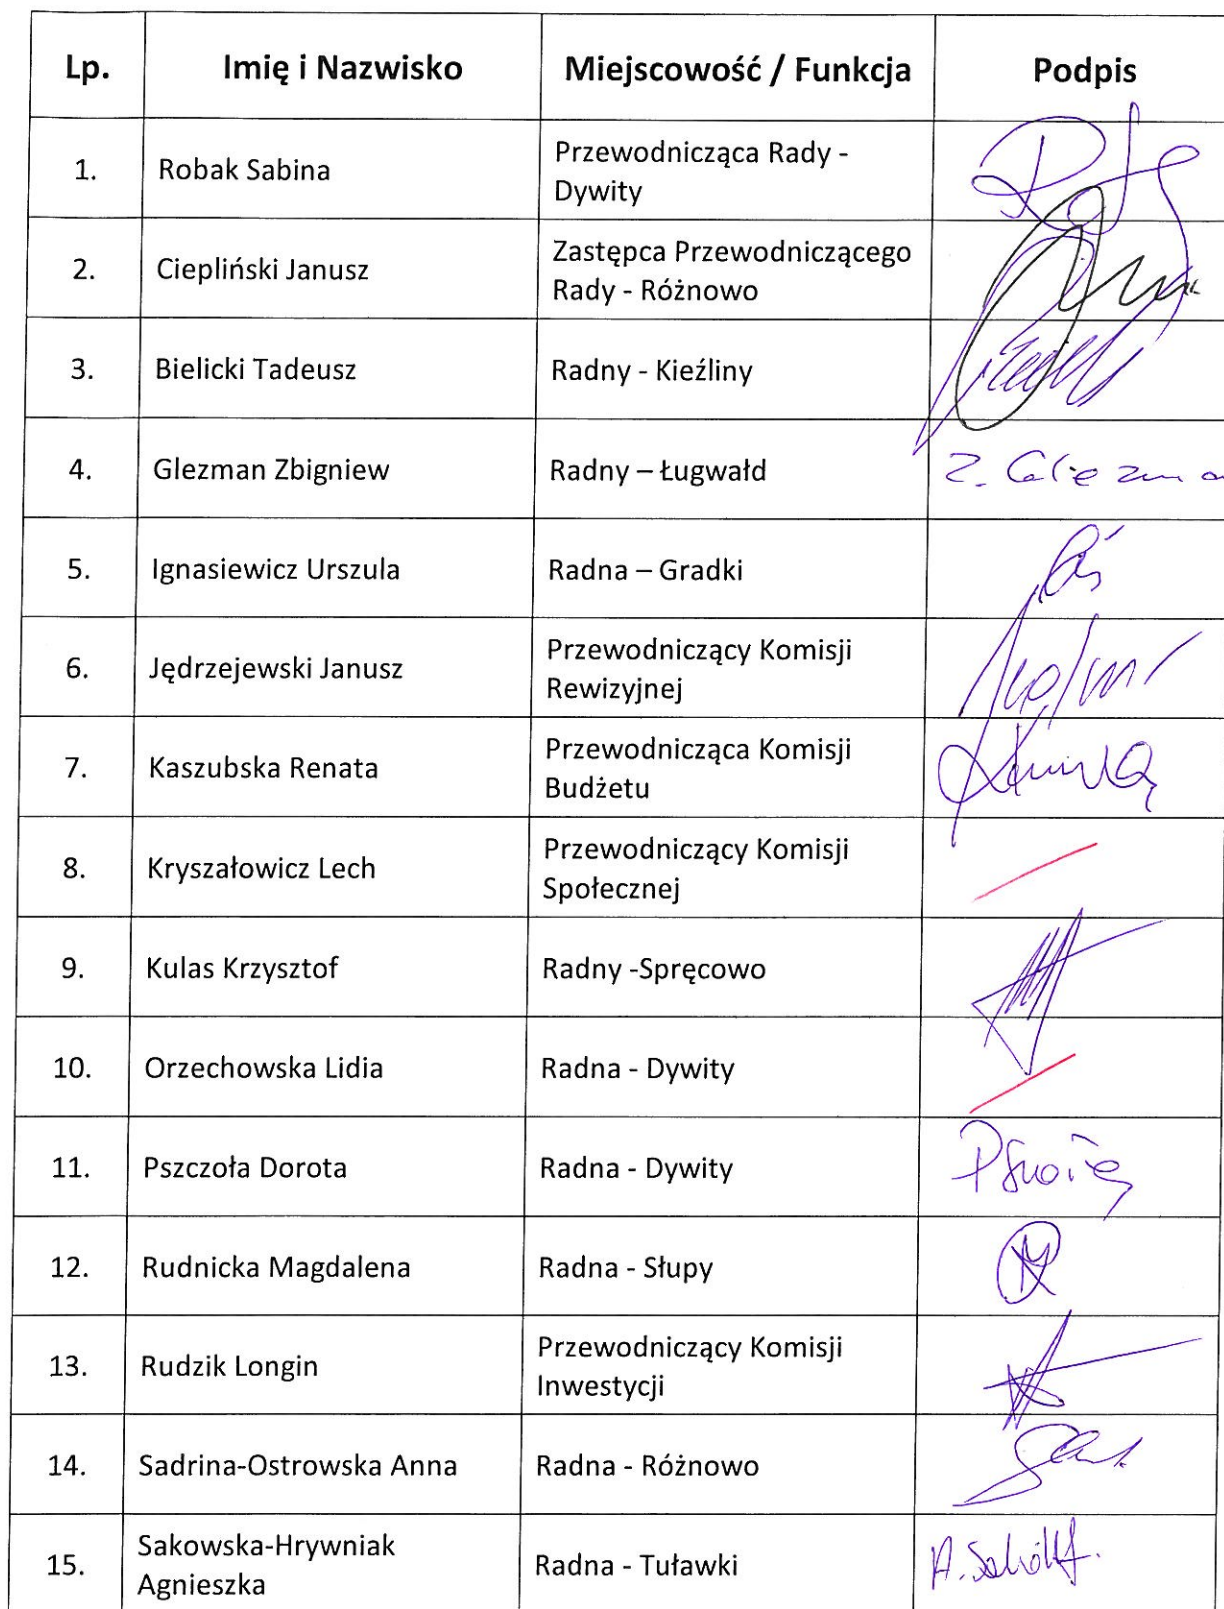 Lp. Imię i Nazwisko Miejscowość / Funkcja Podpis
1. Robak Sabina Przewodnicząca Rady -
Dywity
2. Ciepliński Janusz Zastępca Przewodniczącego
Rady - Różnowo
3. Bielicki Tadeusz Radny - Kieźliny
4. Glezman Zbigniew Radny – Ługwałd
5. Ignasiewicz Urszula Radna – Gradki
6. Jędrzejewski Janusz Przewodniczący Komisji
Rewizyjnej
7. Kaszubska Renata Przewodnicząca Komisji
Budżetu
8. Kryszałowicz Lech Przewodniczący Komisji
Społecznej
9. Kulas Krzysztof Radny -Spręcowo
10. Orzechowska Lidia Radna - Dywity
11. Pszczoła Dorota Radna - Dywity
12. Rudnicka Magdalena Radna - Słupy
13. Rudzik Longin Przewodniczący Komisji
Inwestycji
14. Sadrina-Ostrowska Anna Radna - Różnowo
15. Sakowska-Hrywniak
Agnieszka Radna - Tuławki